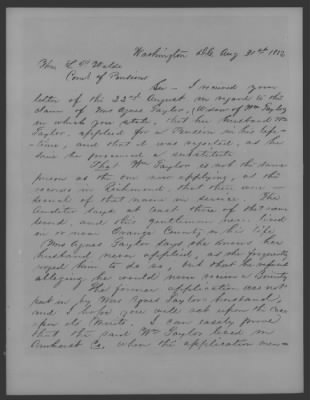 Washington D.C. Aug 31st 18
Hon.
Com'r of Pensions
Sir — I received your
letter of the 22nd August, in regard to the
claim of Mrs Agnes Taylor, (Widow of Wm Taylor)
in which you state, that her husband Wm
Taylor, applied for a Pension in his life-
time, and that it was rejected, as the
same he procured a substitute
That Wm Taylor is not the same
person as the one now applying, as the
records in Richmond, that there were
several of that name in service. The
Auditor says at least three of the same
and this gentleman here lived
in or near Orange County in his life
Mrs Agnes Taylor says she knows her
husband never applied, as she frequently
urged him to do so, but that he refused
alleging he would now receive a Bounty
The former application was not
put in by Mrs Agnes Taylors husband,
and I hope you will act upon the case
upon its Merits. I can easily prove
that the said Wm Taylor lived in
Amherst Co. when the application was